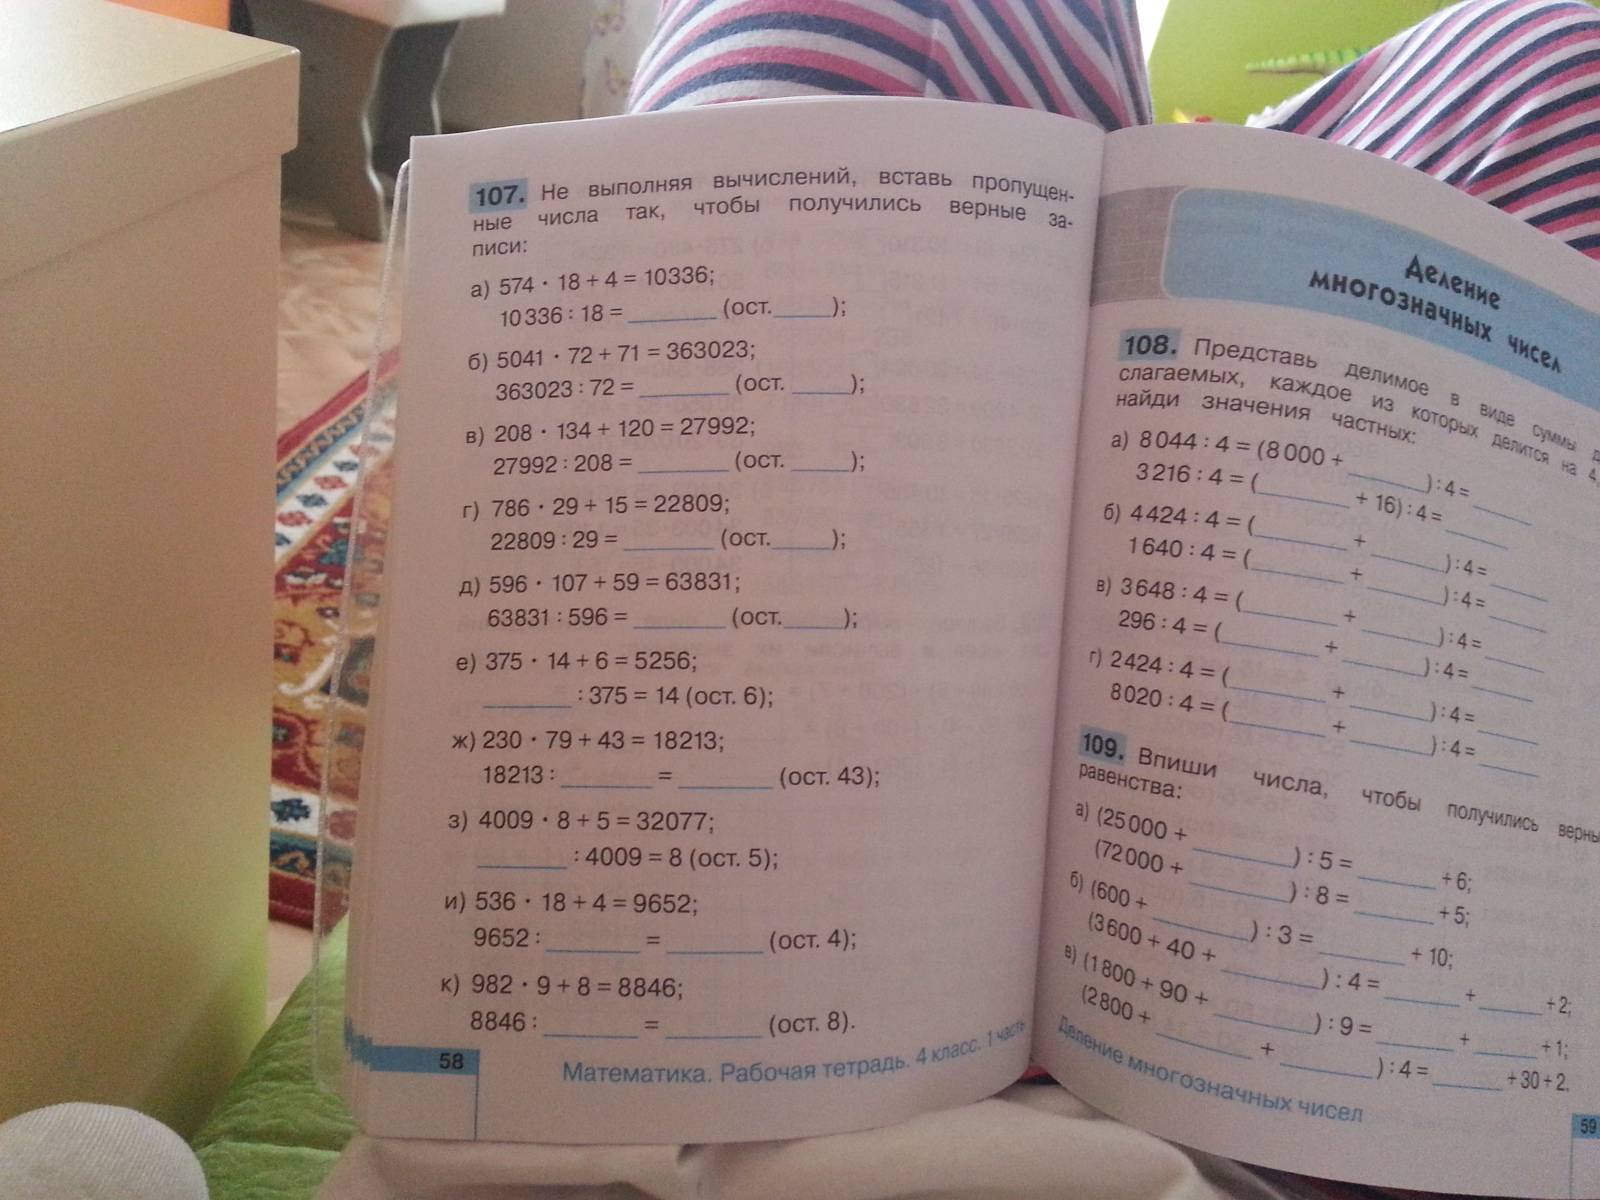 107. Не выполняя вычислений, вставь пропущен-
ные числа так, чтобы получились верные за-
писи:
а) 574 · 18 + 4 = 10336;
10 336 : 18 = ______ (ост.____);
б) 5041 · 72 + 71 = 363023;
363023 : 72 = ______ (ост. ____);
в) 208 · 134 + 120 = 27992;
27992 : 208 = ______ (ост. ____);
г) 786 · 29 + 15 = 22809;
22809 : 29 = ______ (ост.____);
д) 596 · 107 + 59 = 63831;
63831 : 596 = ______ (ост.____);
е) 375 · 14 + 6 = 5256;
______ : 375 = 14 (ост. 6);
ж) 230 · 79 + 43 = 18213;
18213 : ______ = ______ (ост. 43);
з) 4009 · 8 + 5 = 32077;
______ : 4009 = 8 (ост. 5);
и) 536 · 18 + 4 = 9652;
9652 : ______ = ______ (ост. 4);
к) 982 · 9 + 8 = 8846;
8846 : ______ = ______ (ост. 8).
58
Математика. Рабочая тетрадь. 4 класс. 1 часть
Деление
многозначных чисел
108. Представь делимое в виде суммы
слагаемых, каждое из которых делится на 4,
найди значения частных:
а) 8 044 : 4 = (8 000 + ______) : 4 = ______
3 216 : 4 = (______ + 16) : 4 = ______
б) 4 424 : 4 = (______ + ______) : 4 = ______
1 640 : 4 = (______ + ______) : 4 = ______
в) 3 648 : 4 = (______ + ______) : 4 = ______
296 : 4 = (______ + ______) : 4 = ______
г) 2 424 : 4 = (______ + ______) : 4 = ______
8 020 : 4 = (______ + ______) : 4 = ______
109. Впиши числа, чтобы получились
равенства:
а) (25 000 + ______) : 5 = ______ + 6;
(72 000 + ______) : 8 = ______ + 5;
б) (600 + ______) : 3 = ______ + 10;
(3 600 + 40 + ______) : 4 = ______ + ______ + 2;
в) (1 800 + 90 + ______) : 9 = ______ + ______ + 1;
(2 800 + ______ + ______) : 4 = ______ + 30 + 2.
Деление многозначных чисел
59